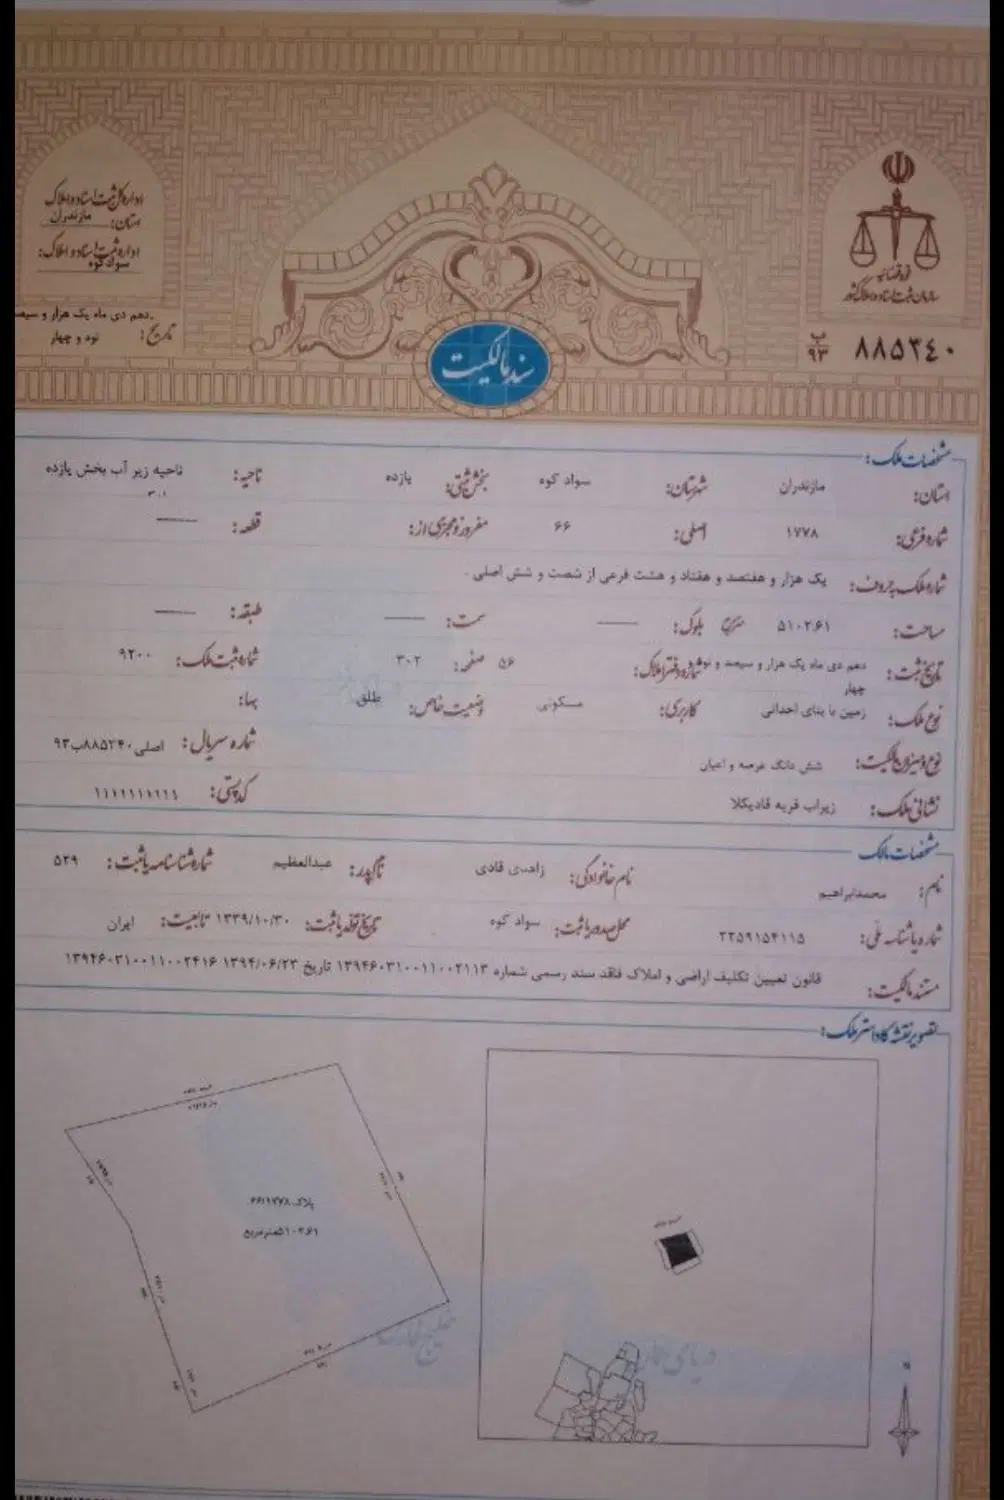 قوه قضائیه
سازمان ثبت اسناد و املاک کشور
۸۸۵۳۴۰ ب ۹۳
اداره کل ثبت اسناد و املاک
استان: مازندران
اداره ثبت اسناد و املاک:
سواد کوه
تاریخ: دهم دی ماه یک هزار و سیصد
نود و چهار
سند مالکیت
مشخصات ملک:
استان: مازندران شهرستان: سواد کوه بخش ثبتی: یازده ناحیه: ناحیه زیر آب بخش یازده
۳۰۱
شماره فرعی: ۱۷۷۸ اصلی: ۶۶ مفروز و مجزی از: قطعه:
شماره ملک به حروف: یک هزار و هفتصد و هفتاد و هشت فرعی از شصت و شش اصلی .
مساحت: ۵۱۰٫۲۶۱ مترمربع بلوک: سمت: طبقه:
تاریخ ثبت: دهم دی ماه یک هزار و سیصد و نود و چهار شماره دفتر املاک: ۵۶ صفحه: ۳۰۲ شماره ثبت ملک: ۹۲۰۰
نوع ملک: زمین با بنای احداثی کاربری: مسکونی وضعیت خاص: طلق بهاء:
نوع و میزان مالکیت: شش دانگ عرصه و اعیان شماره سریال: اصلی ۸۸۵۳۴۰ب۹۳
نشانی ملک: زیراب قریه قادیکلا کد پستی: ۱۱۱۱۱۱۱۱۱۱
مشخصات مالک
نام: محمدابراهیم نام خانوادگی: قادی نام پدر: عبدالعظیم شماره شناسنامه یا ثبت: ۵۲۹
شماره یا شناسه ملی: ۲۲۵۹۱۵۴۱۱۵ محل صدور یا ثبت: سواد کوه تاریخ تولد یا ثبت: ۱۳۳۹/۱۰/۳۰ تابعیت: ایران
مستند مالکیت: قانون تعیین تکلیف اراضی و املاک فاقد سند رسمی شماره ۱۳۹۴۶۰۳۱۰۰۱۱۰۰۲۱۱۳ تاریخ ۱۳۹۴/۰۶/۲۳ ۱۳۹۴۶۰۳۱۰۰۱۱۰۰۲۴۱۶
تصویر نقشه کاداستر ملک:
پلاک ۶۶/۱۷۷۸
۵۱۰٫۲۶۱ مترمربع
خلیج فارس
دریای عمان
N